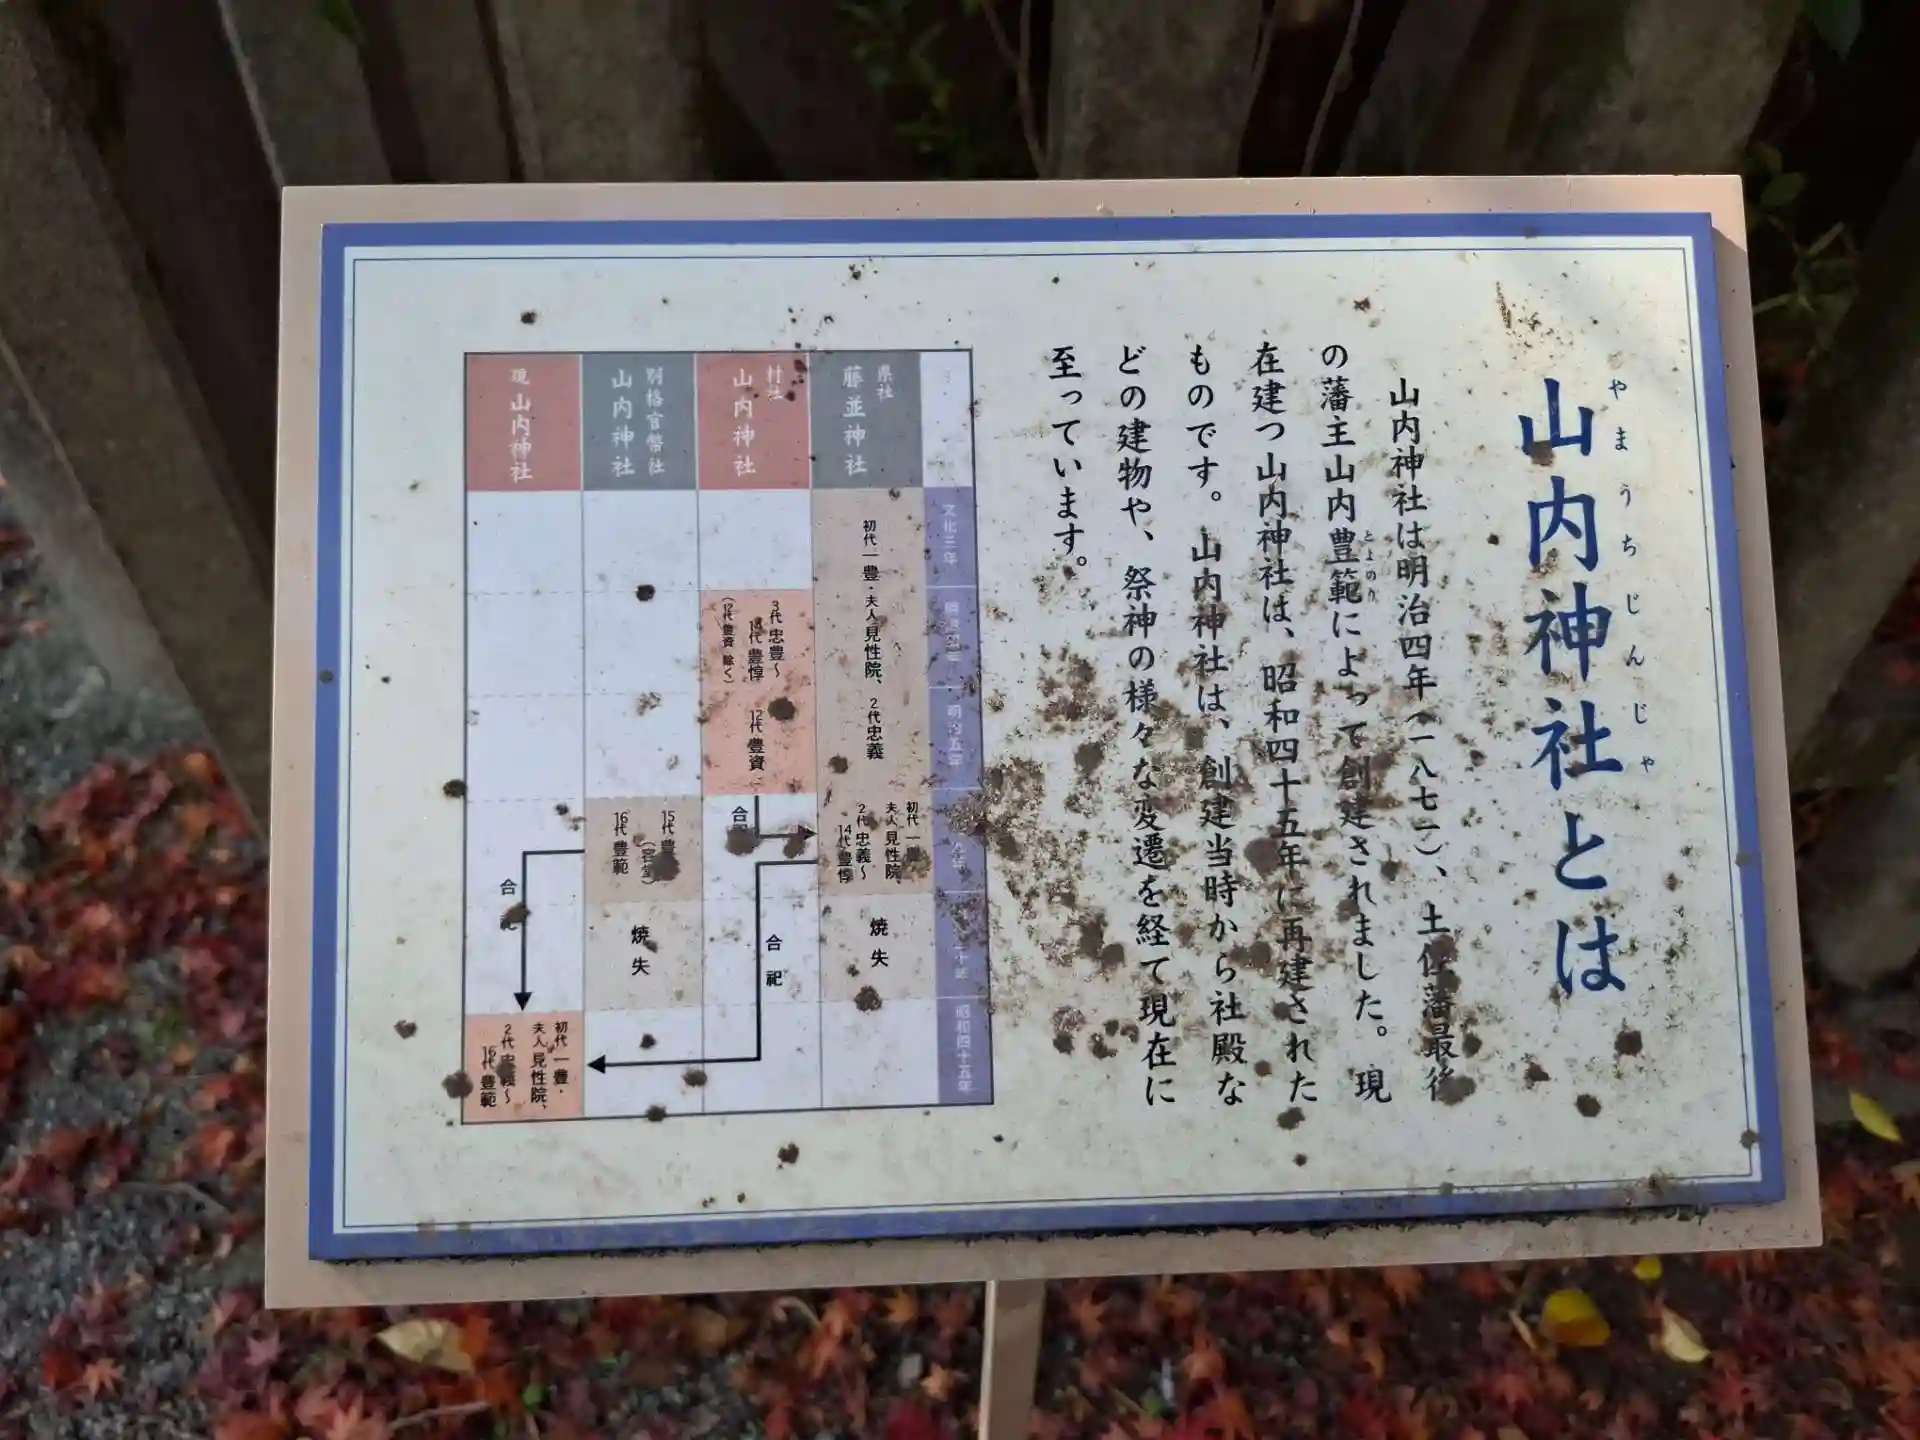 山内神社とは
やまうちじんじゃ
山内神社は明治四年(一八七一)、土佐藩最後
の藩主山内豊範によって創建されました。現
とよのり
在建つ山内神社は、昭和四十五年に再建された
ものです。山内神社は、創建当時から社殿な
どの建物や、祭神の様々な変遷を経て現在に
至っています。
文化三年
明治五年
昭和四十五年
県社
藤並神社
初代 一豊・夫人 見性院、2代 忠義
初代 一豊
夫人 見性院、
2代 忠義〜
14代 豊惇
焼失
村社
山内神社
3代 忠豊〜
14代 豊惇
(12代 豊資 除く)
12代 豊資
合
合祀
別格官幣社
山内神社
15代 豊
(容堂)
16代 豊範
焼失
現 山内神社
合
初代 一豊・
夫人 見性院、
2代 忠義〜
16代 豊範